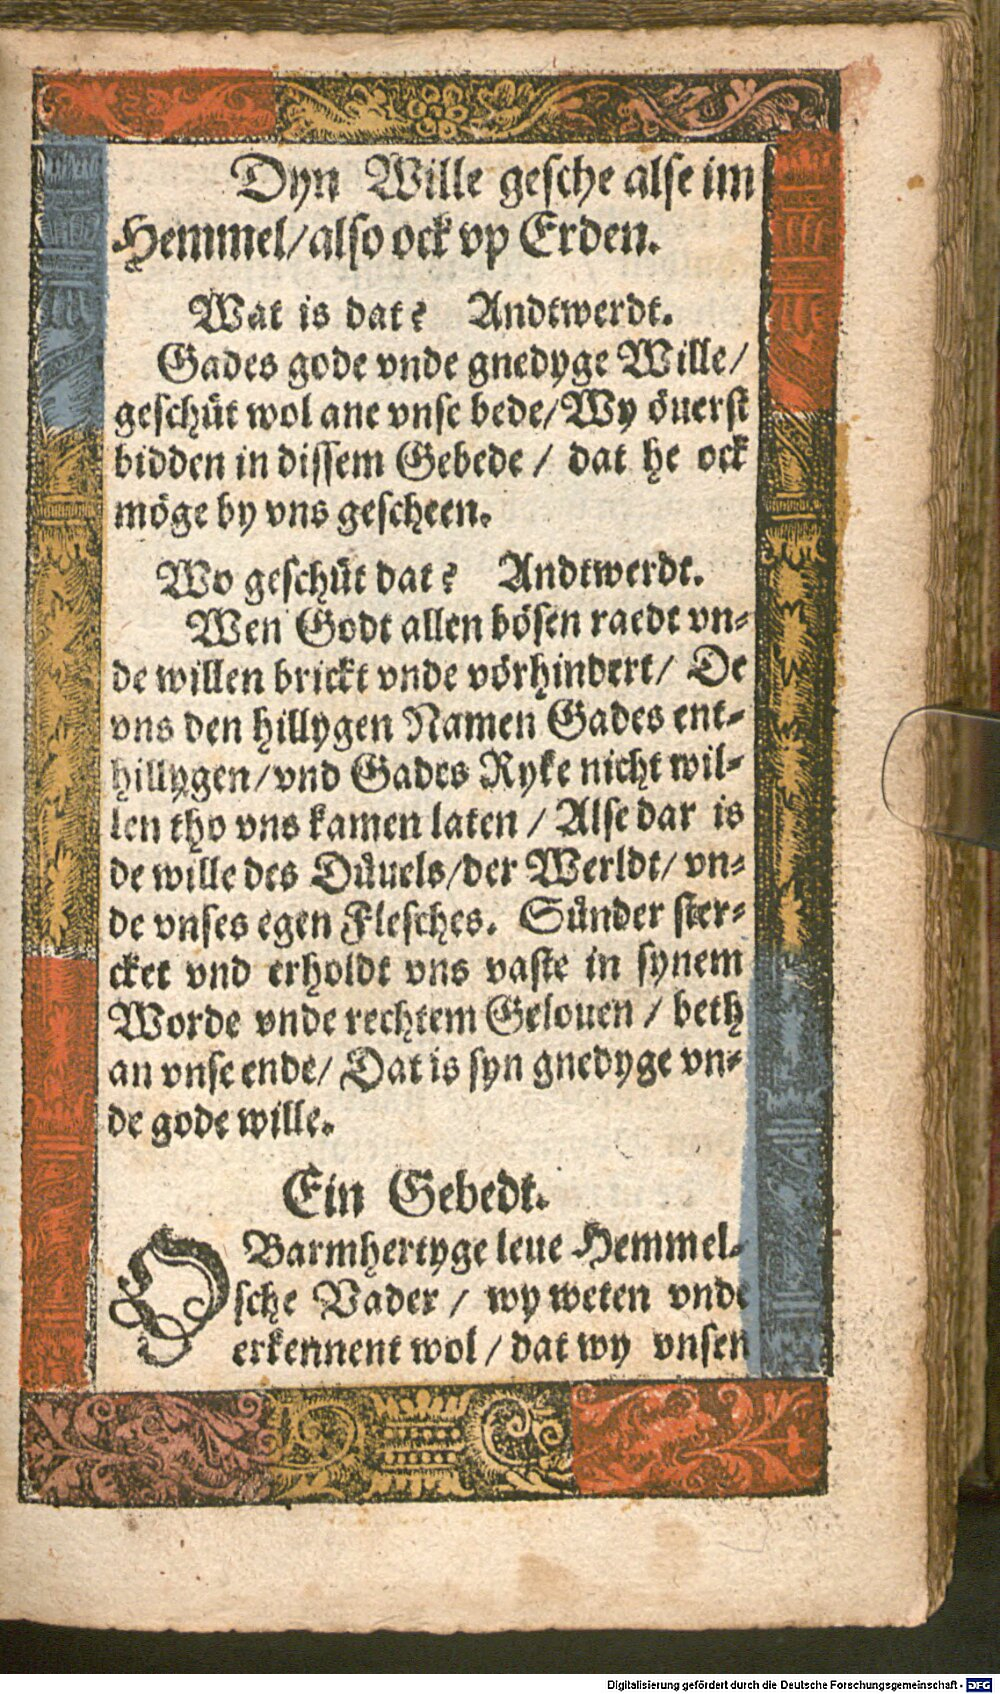 Dyn Wille gesche alse im
Hemmel/also ock vp Erden.
Wat is dat? Andtwerdt.
Gades gode vnde gnedyge Wille/
geschüt wol ane vnse bede/Wy öuerst
bidden in dissem Gebede / dat he ock
möge by vns gescheen.
Wo geschüt dat? Andtwerdt.
Wen Godt allen bösen raedt vn-
de willen brickt vnde vörhindert/ De
vns den hillygen Namen Gades ent-
hillygen/vnd Gades Ryke nicht wil-
len tho vns kamen laten / Alse dar is
de wille des Düuels/der Werldt/ vn-
de vnses egen Flesches. Sünder ster-
cket vnd erholdt vns vaste in synem
Worde vnde rechtem Gelouen / beth
an vnse ende/ Dat is syn gnedyge vn-
de gode wille.
Ein Gebedt.
O Barmhertyge leue Hemmel-
sche Vader / wy weten vnde
erkennent wol / dat wy vnsen
Digitalisierung gefördert durch die Deutsche Forschungsgemeinschaft - DFG